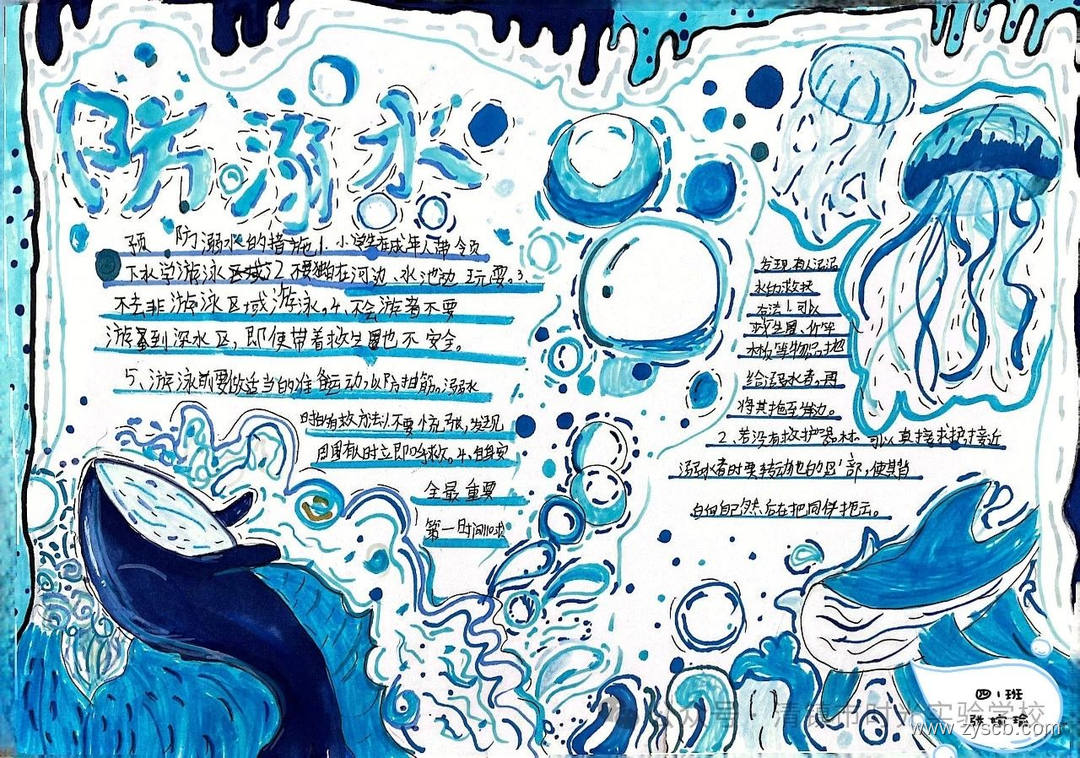 防溺水
预 防溺水的措施1、小学生在成年人带令页
下水学游泳区域2不要独自在河边、水池边玩耍。3、
不去非游泳区域游泳。4、不会游者不要
游到深水区，即使带着救生圈也不安全。
5、游泳前要做适当的准备运动，以防抽筋。溺水
时的有效方法1、不要
周围有人时立即呼救。
全最重要
第一时间
发现有人
水的救
方法1、可以
救生圈、竹竿
木板等物品抛
给溺水者，再
将其拖至岸边。
2、若没有救护器材，可以直接救护，接近
溺水者时要转动他的 部，使其背
向自己然后在把同伴拖云。
四1班
张
公众号 清镇市时光实验学校
www.zyscb.com